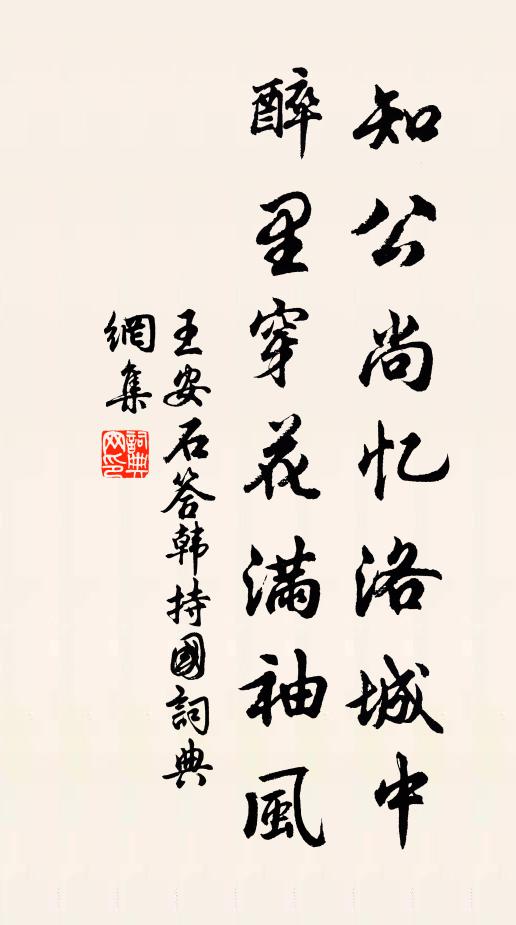 知公尚忆洛城中
醉里穿花满袖風
王安石答韩持國詞典
網集
詞典網印